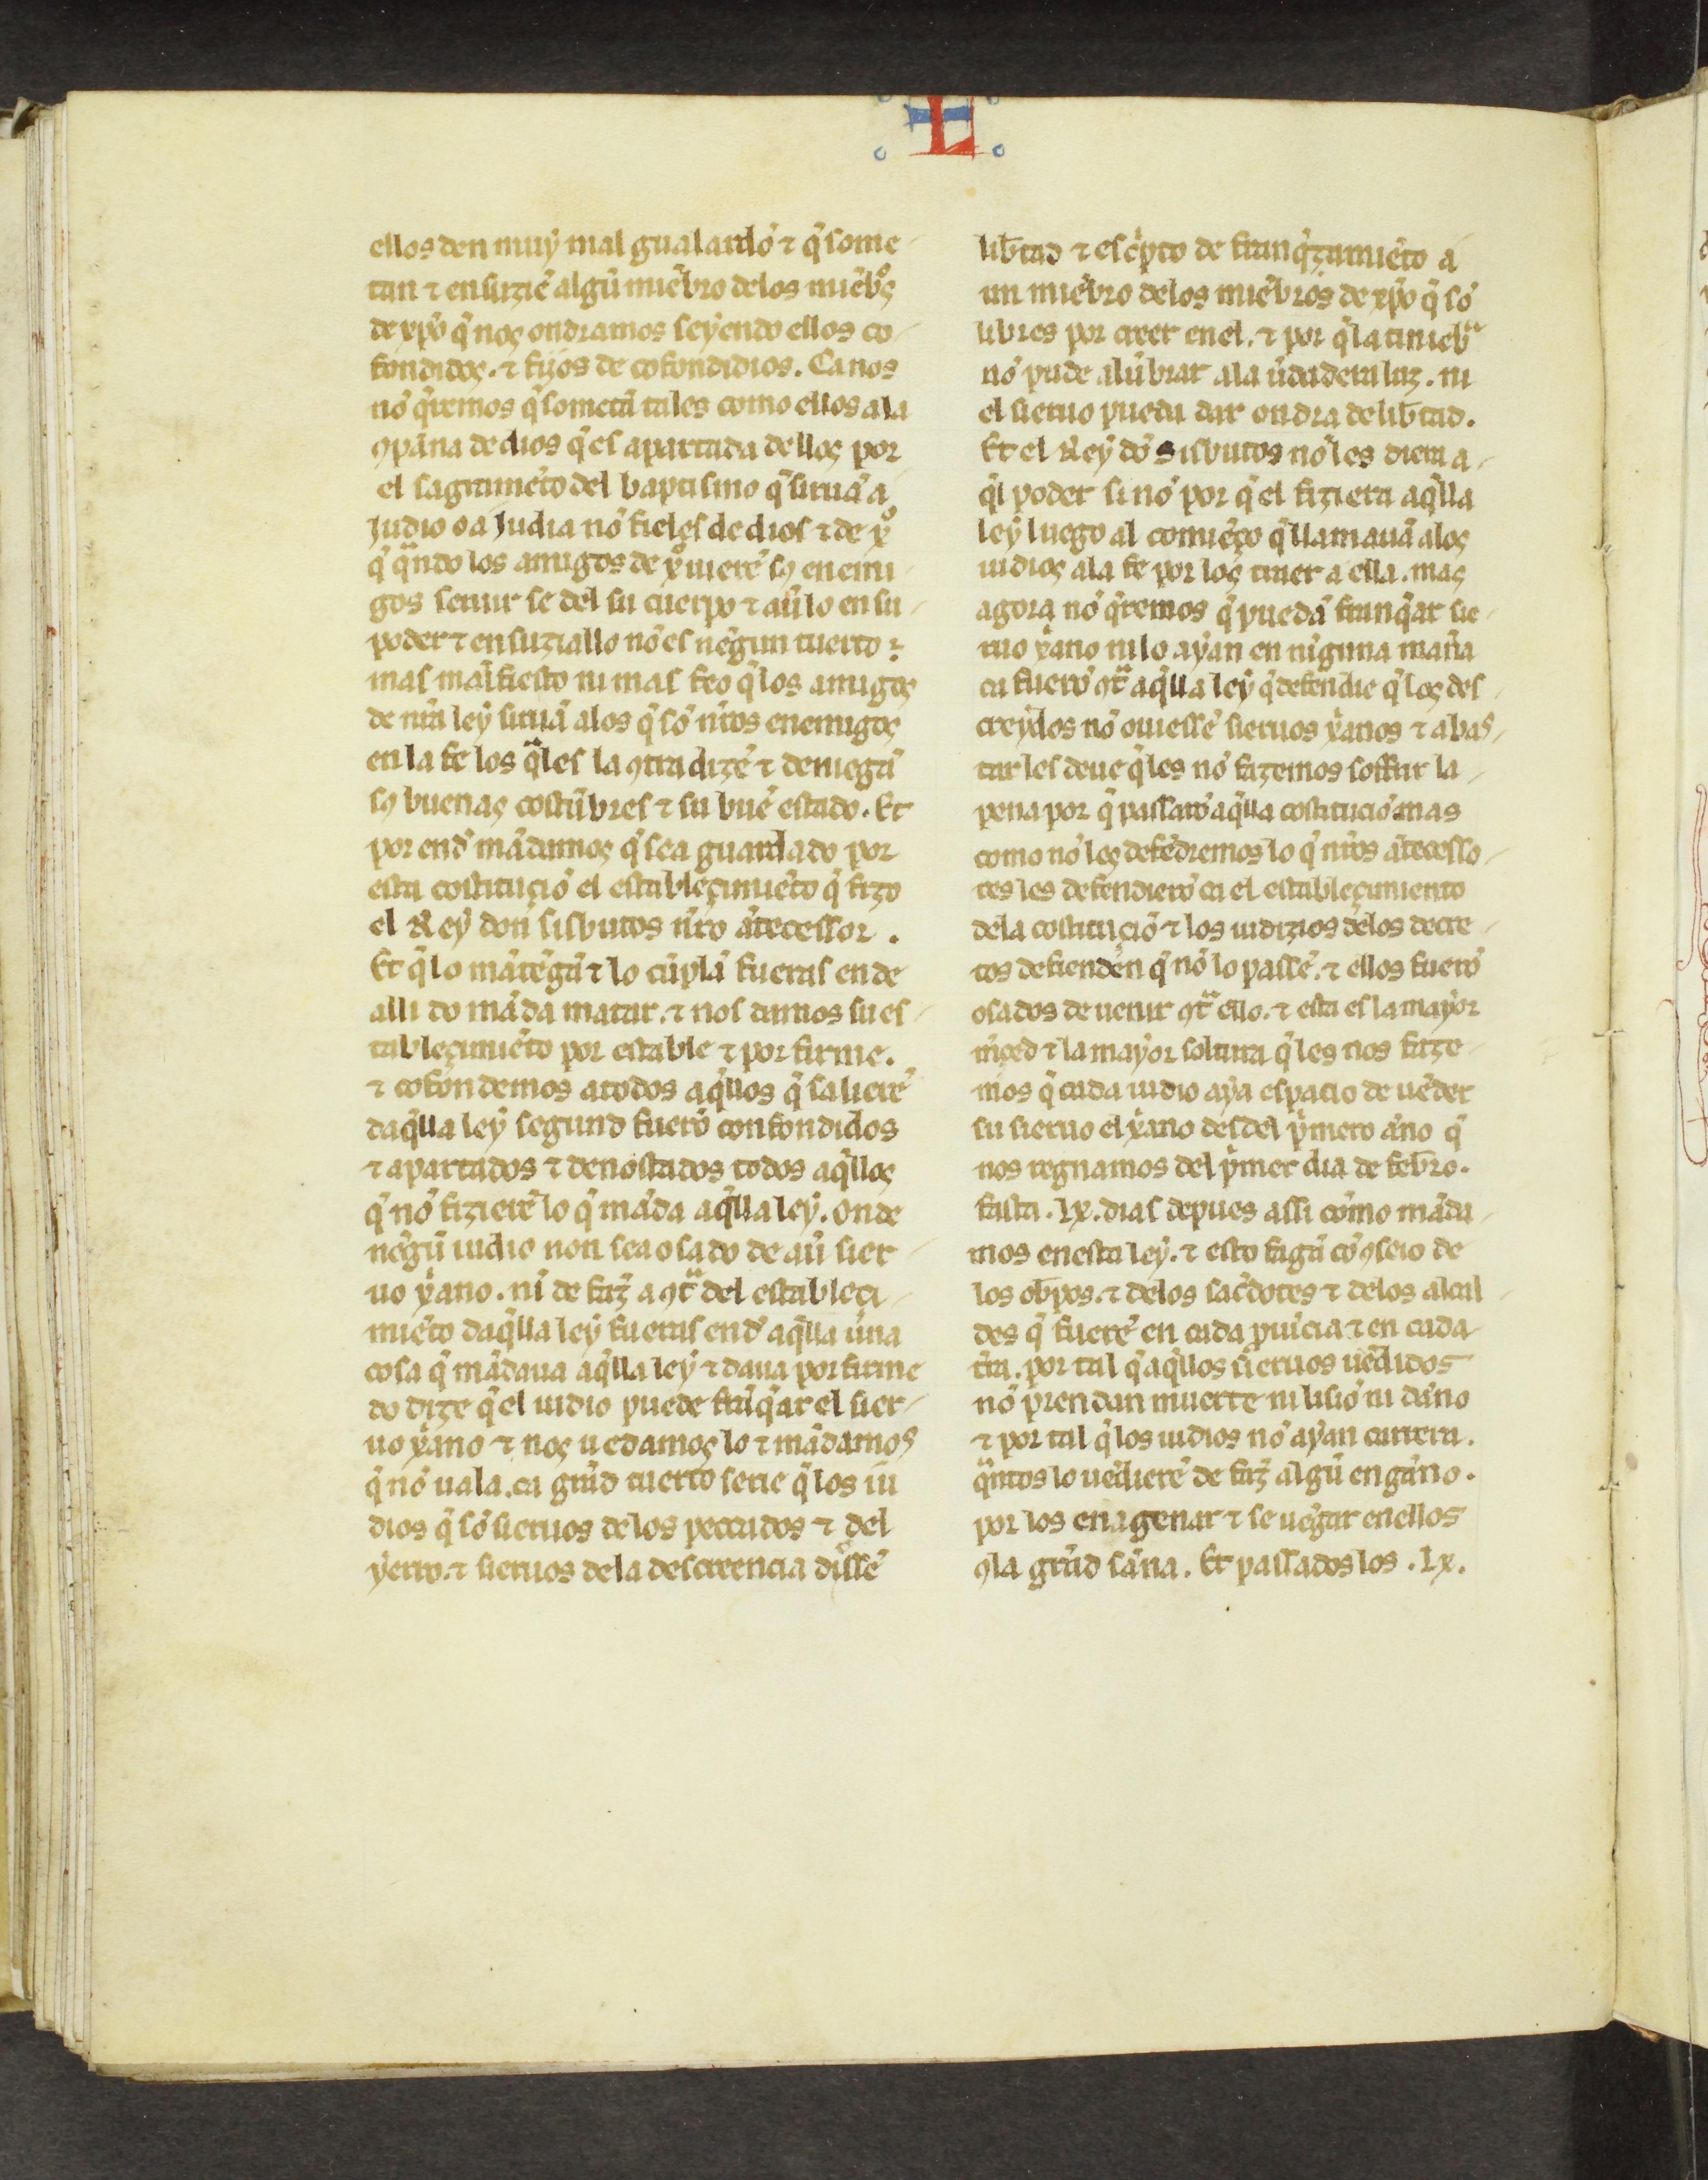 L
ellos den muy mal gualardõ ⁊ q̃ some-
tan ⁊ ensuziẽ algũ miẽbro delos miẽbͦs
de xp̃o q̃ nos ondramos seyendo ellos co-
fondidos. ⁊ fijos de cofondidios. Ca nos
nõ q̃remos q̃ sometã tales como ellos ala
ꝯpãna de dios q̃ es apartada dellos por
el sagramẽto del baptismo q̃ siruã a
Judio o a Judia nõ fieles de dios ⁊ de xͦ
q̃ qᷓndo los amigos de xͦ uierẽ sꝰ enemi-
gos seruir se del su cuerpo ⁊ aũlo en su-
poder ⁊ ensuziallo nõ es nẽgun tuerto
mas mãifiesto ni mas feo q̃ los amigos
de nr̃a ley siruã alos q̃ sõ nr̃os enemigos
en la fe los qᷓles la ꝯtradizẽ ⁊ deniegã
sꝰ buenas costũbres ⁊ su buẽ estado. Et
por end̃ mãdamos q̃ sea guardado por
esta costituçiõ el estableçimiẽto q̃ fizo
el Rey don sisbutos nr̃o ãtecessor.
Et q̃ lo mãtẽgã ⁊ lo cũplã fueras ende
alli do mãda matar. ⁊ nos damos su es-
tableçimiẽto por estable ⁊ por firme.
⁊ cofondemos atodos aq̃llos q̃ salierẽ
daq̃lla ley segund fuerõ confondidos
⁊ apartados ⁊ denostados todos aq̃llos
q̃ nõ fizierẽ lo q̃ mãda aq̃lla ley. onde
nẽgũ iudio non sea osado de aũ sier-
uo xͥano. ni de faz̃ a ꝯtᷓ del estableçi-
miẽto daq̃lla ley fueras end̃ aq̃lla una
cosa q̃ mãdaua aq̃lla ley ⁊ daua por firme
do dize q̃ el iudio puede frãq̃ar el sier-
uo xͥano ⁊ nos uedamos lo ⁊ mãdamos
q̃ nõ uala. ca grãd tuerto serie q̃ los iu
dios q̃ sõ sieruos delos peccados ⁊ del
yerro. ⁊ sieruos dela descreencia diessẽ
lib̃tad ⁊ escͥpto de franq̃zamiẽto a
un miẽbro delos miẽbros de xp̃o q̃ sõ
libres por creer en el. ⁊ por q̃ la tiniebᷓ
nõ pude alũbrar ala ũdadera luz. ni
el sieruo pueda dar ondra de lib̃tad.
Et el Rey dõ sisbutos nõ les diera a-
q̃l poder si nõ por q̃ el fiziera aq̃lla
ley luego al comiẽço q̃ llamauã alos
iudios ala fe por los traer a ella. mas
agora nõ q̃remos q̃ puedã franq̃ar sie-
ruo xͥano ni lo ayan en niguna mañra
ca fuerõ ꝯtᷓ aq̃lla ley q̃ defendie q̃ los des-
creydos nõ ouiessẽ sieruos xͥanos ⁊ abas-
tar les deue q̃ les nõ fazemos soffrir la-
pena por q̃ passarõ aq̃lla costituciõ mas
como nõ les defẽdremos lo q̃ nr̃os ãtecesso-
res les defendierõ ca el estableçimiento
dela costituçiõ ⁊ los iudizios delos decre-
tos defienden q̃ nõ lo passẽ. ⁊ ellos fuerõ
osados de uenir ꝯtᷓ ello. ⁊ esta es la mayor
m̃çed ⁊ la mayor soltura q̃ les nos faze-
mos q̃ cada iudio aya espacio de uẽder
su sieruo el xͥano desdel pͥmero ãno q̃
nos regnamos del pͥmer dia de feb̃ro.
fasta .lx. dias depues assi como mãda-
mos en esta ley. ⁊ esto fagã cõ ꝯseio de
los ob̃pos. ⁊ delos sac̃dotes ⁊ delos alcal-
des q̃ fuerẽ en cada puĩcia ⁊ en cada
tr̃ra. por tal q̃ aq̃llos sieruos uẽdidos
nõ prendan muerte ni lisiõ ni dãno
⁊ por tal q̃ los iudios nõ ayan carrera.
qᷓntos lo uẽdierẽ de faz̃ algũ engãno.
por los enagenar ⁊ se uẽgar en ellos
ꝯla grãd sãna. Et passados los .lx.